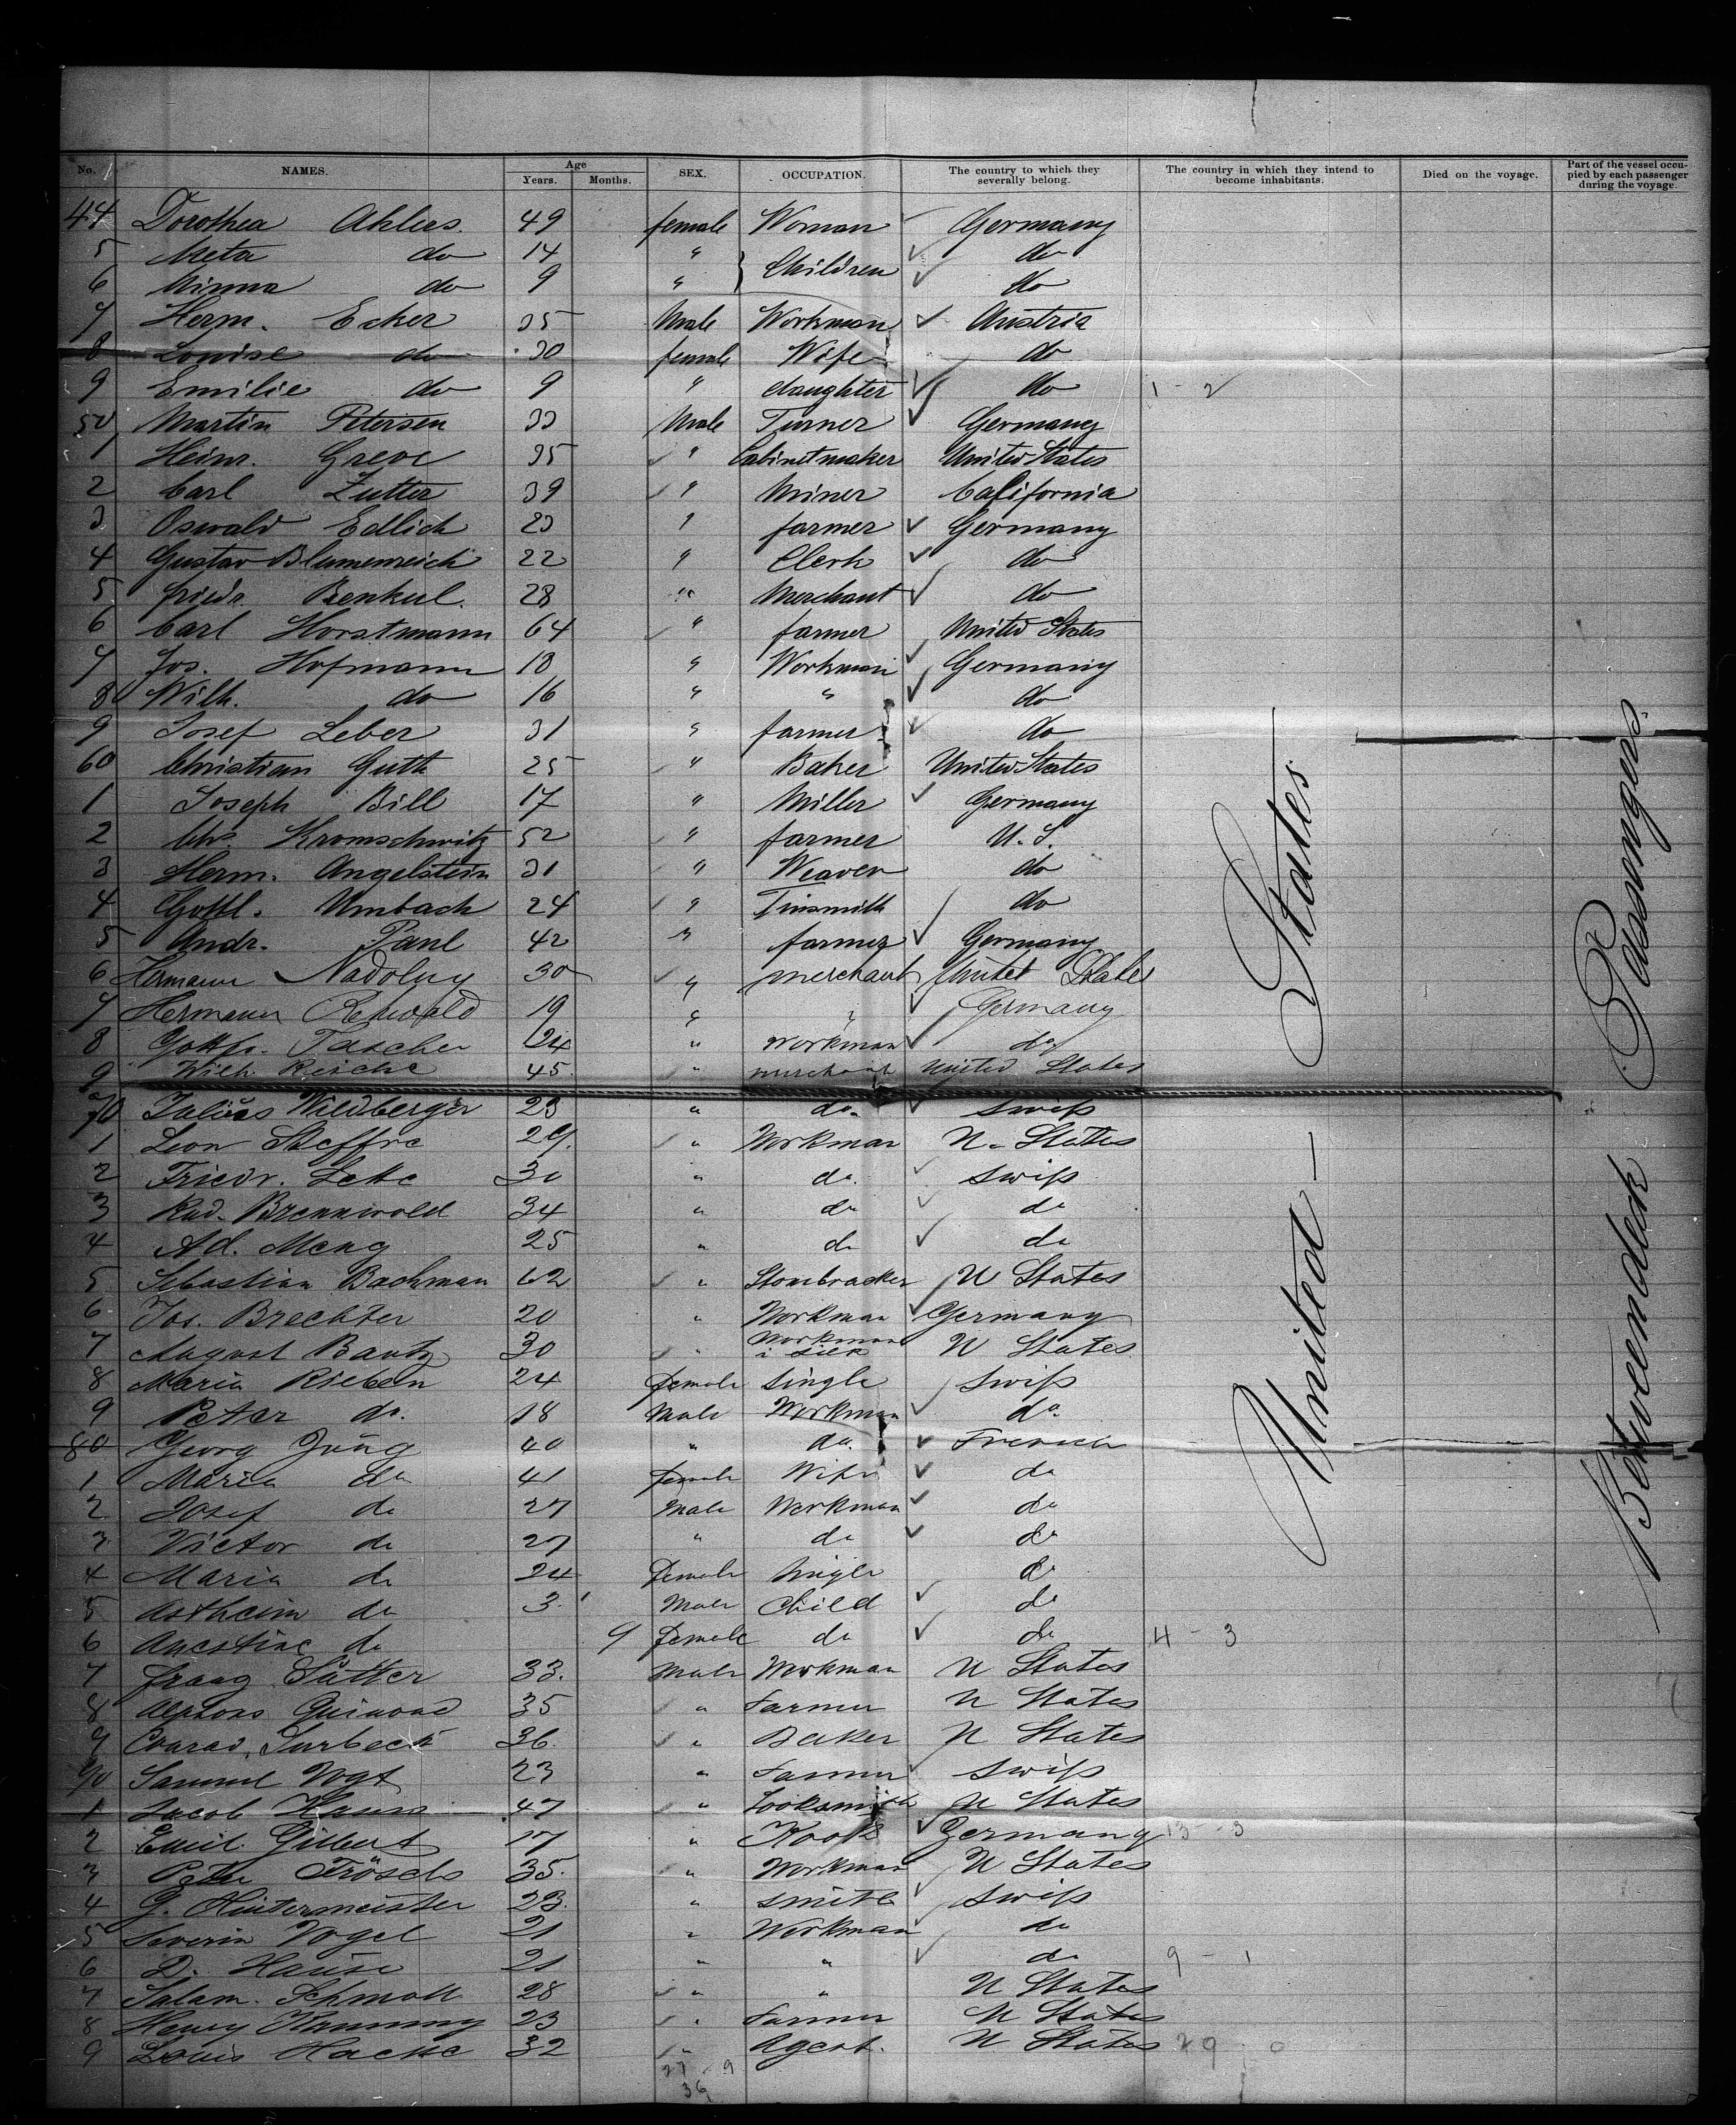 No. NAMES. Age Years. Months. SEX. OCCUPATION. The country to which they severally belong. The country in which they intend to become inhabitants. Died on the voyage. Part of the vessel occupied by each passenger during the voyage.
44 Dorothea Ahlers. 49 female Woman Germany
5 Meta do 14 " } Children do
6 Minna do 9 " do
7 Herm. Ecker 35 Male Workman Austria
8 Louise do 30 female Wife do
9 Emilie do 9 " daughter do 1 - 2
50 Martin Petersen 33 Male Turner Germany
1 Heinr. Greve 35 " Cabinetmaker United States
2 Carl Zutter 39 " Miner California
3 Oswald Edlich 23 " farmer Germany
4 Gustav Blumenreich 22 " Clerk do
5 friedr. Benkul. 28 " Merchant do
6 Carl Horstmann 64 " farmer United States
7 Jos. Hofmann 18 " Workman Germany
8 Wilh. do 16 " " do
9 Josef Leber 31 " farmer do
60 Christian Guth 25 " Baker United States
1 Joseph Bill 17 " Miller Germany
2 Chr. Kromschwitz 52 " farmer U. S.
3 Herm. Angelstein 31 " Weaver do
4 Gottl. Umbach 24 " Tinsmith do
5 Andr. Paul 42 " farmer Germany
6 Hermann Nadolny 30 " merchant Unitet State
7 Hermann Rehwald 19 " " Germany
8 Gottfr. Tascher 24 " workman do
9 Wilh. Reiche 45 " merchant United States
70 Julius Wildberger 23 " do. Swiss
1 Leon Steffre 29. " Workman U. States
2 Friedr. Lette 30 " do. Swiss
3 Rud. Brennwold 34 " do do
4 Ad. Meng 25 " do do
5 Sebastian Bachman 62 " Stonbracker U States
6 Jos. Brechter 20 " Workman Germany
7 August Bautz 30 " Workman i Silk U States
8 Maria Rieben 24 female Single Swiss
9 Peter do. 18 Male Workman do.
80 Georg Jüng 40 " do. French
1 Maria do 41 female Wife do
2 Josef do 27 Male Workman do
3 Victor do 27 " do do
4 Maria do 24 female Single do
5 Astheim do 3. Male Child do
6 do 9 female do do 4 - 3
7 Sütter 33. Male Workman U States
8 Alphons 35 " Farmer U States
9 Conrad Surbeck 36. " Baker U States
90 Samuel Vogt 23 " Farmer Swiss
1 Jacob 47 " Looksmith U States
2 Emil Gilbert 17 " Kook Germany 13 - 3
3 Peter Frösch 35. " Workman U States
4 G. Hintermeister 23. " Smith Swiss
5 Severin Vogel 21 " Workman do
6 D. 21 " " do 9 - 1
7 Salam. Schmoll 28 " " U States
8 Henry 23 " Farmer U States
9 Louis Hacke 32 " Agent. U States 29 0
27 - 9
36
United States
Betweendeck Passengers.